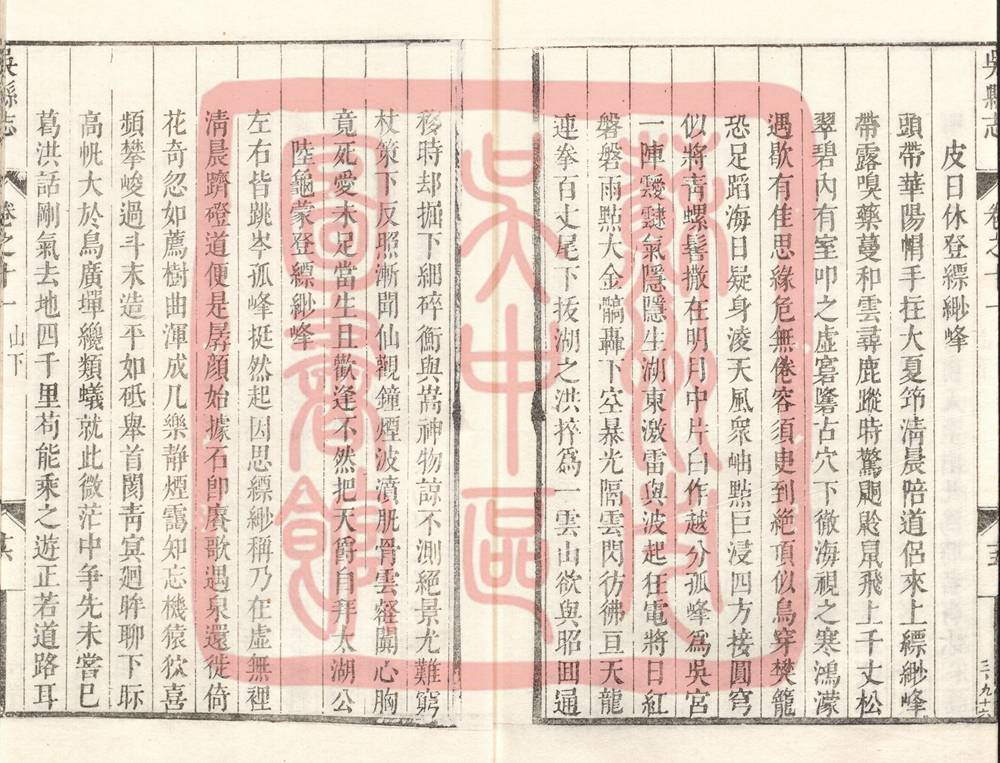 吳縣志 卷之十一 十五
三、九十六
皮日休登縹緲峰
頭帶華陽帽手拄大夏筇清晨陪道侶來上縹緲峰
帶露嗅藥蔓和雲尋鹿蹤時驚鼠飛上千丈松
翠碧內有室叩之虛古穴下徹海視之寒鴻濛
遇歇有佳思緣危無倦容須臾到絶頂似鳥穿樊籠
恐足蹈海日疑身凌天風衆岫點巨浸四方接圓穹
似將青螺髻撒在明月中片白作越分孤峰爲吳宮
一陣靉靆氣隱隱生湖東激雷與波起狂電將日紅
磐磐雨點大金髇轟下空暴光隔雲閃彷彿亘天龍
連拳百丈尾下拔湖之洪捽爲一雲山欲與昭囬通
移時却掘下細碎衡與嵩神物諒不測絶景尤難窮
杖策下反照漸聞仙觀鐘煙波濆肌骨雲壑闐心胸
竟死愛未足當生且歡逢不然把天爵自拜太湖公
陸龜蒙登縹緲峰
左右皆跳岑孤峰挺然起因思縹緲稱乃在虛無裡
清晨躋磴道便是孱顏始據石卽賡歌遇泉還徙倚
花奇忽如薦樹曲渾成几樂靜煙靄知忘機猿狖喜
頻攀峻過斗末造平如砥舉首閡青冥廻眸聊下眎
高帆大於鳥廣墠纔類蟻就此微茫中爭先未嘗巳
葛洪話剛氣去地四千里苟能乘之遊正若道路耳
吳縣志 卷之十一 山下 十六
蘇州市吳中區圖書館